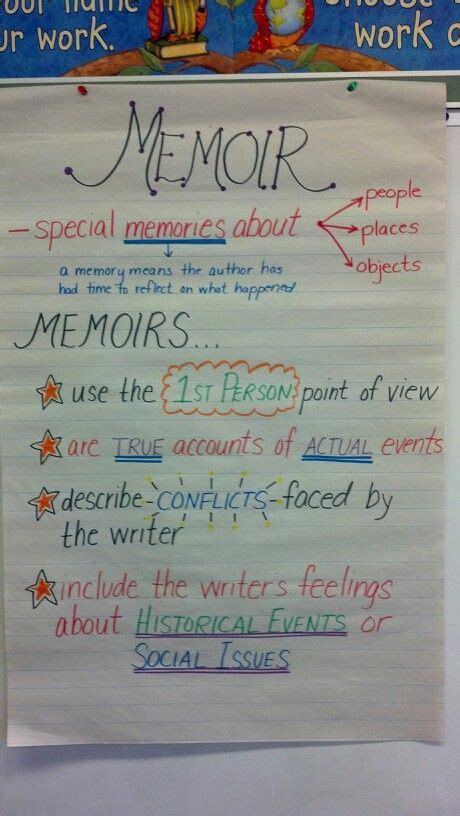 your name
ur work.
choose
work a
MEMOIR
– special memories about
people
places
objects
a memory means the author has
had time to reflect on what happened
MEMOIRS...
use the 1ST PERSON point of view
are TRUE accounts of ACTUAL events
describe - CONFLICTS - faced by
the writer
include the writer's feelings
about HISTORICAL EVENTS or
SOCIAL ISSUES